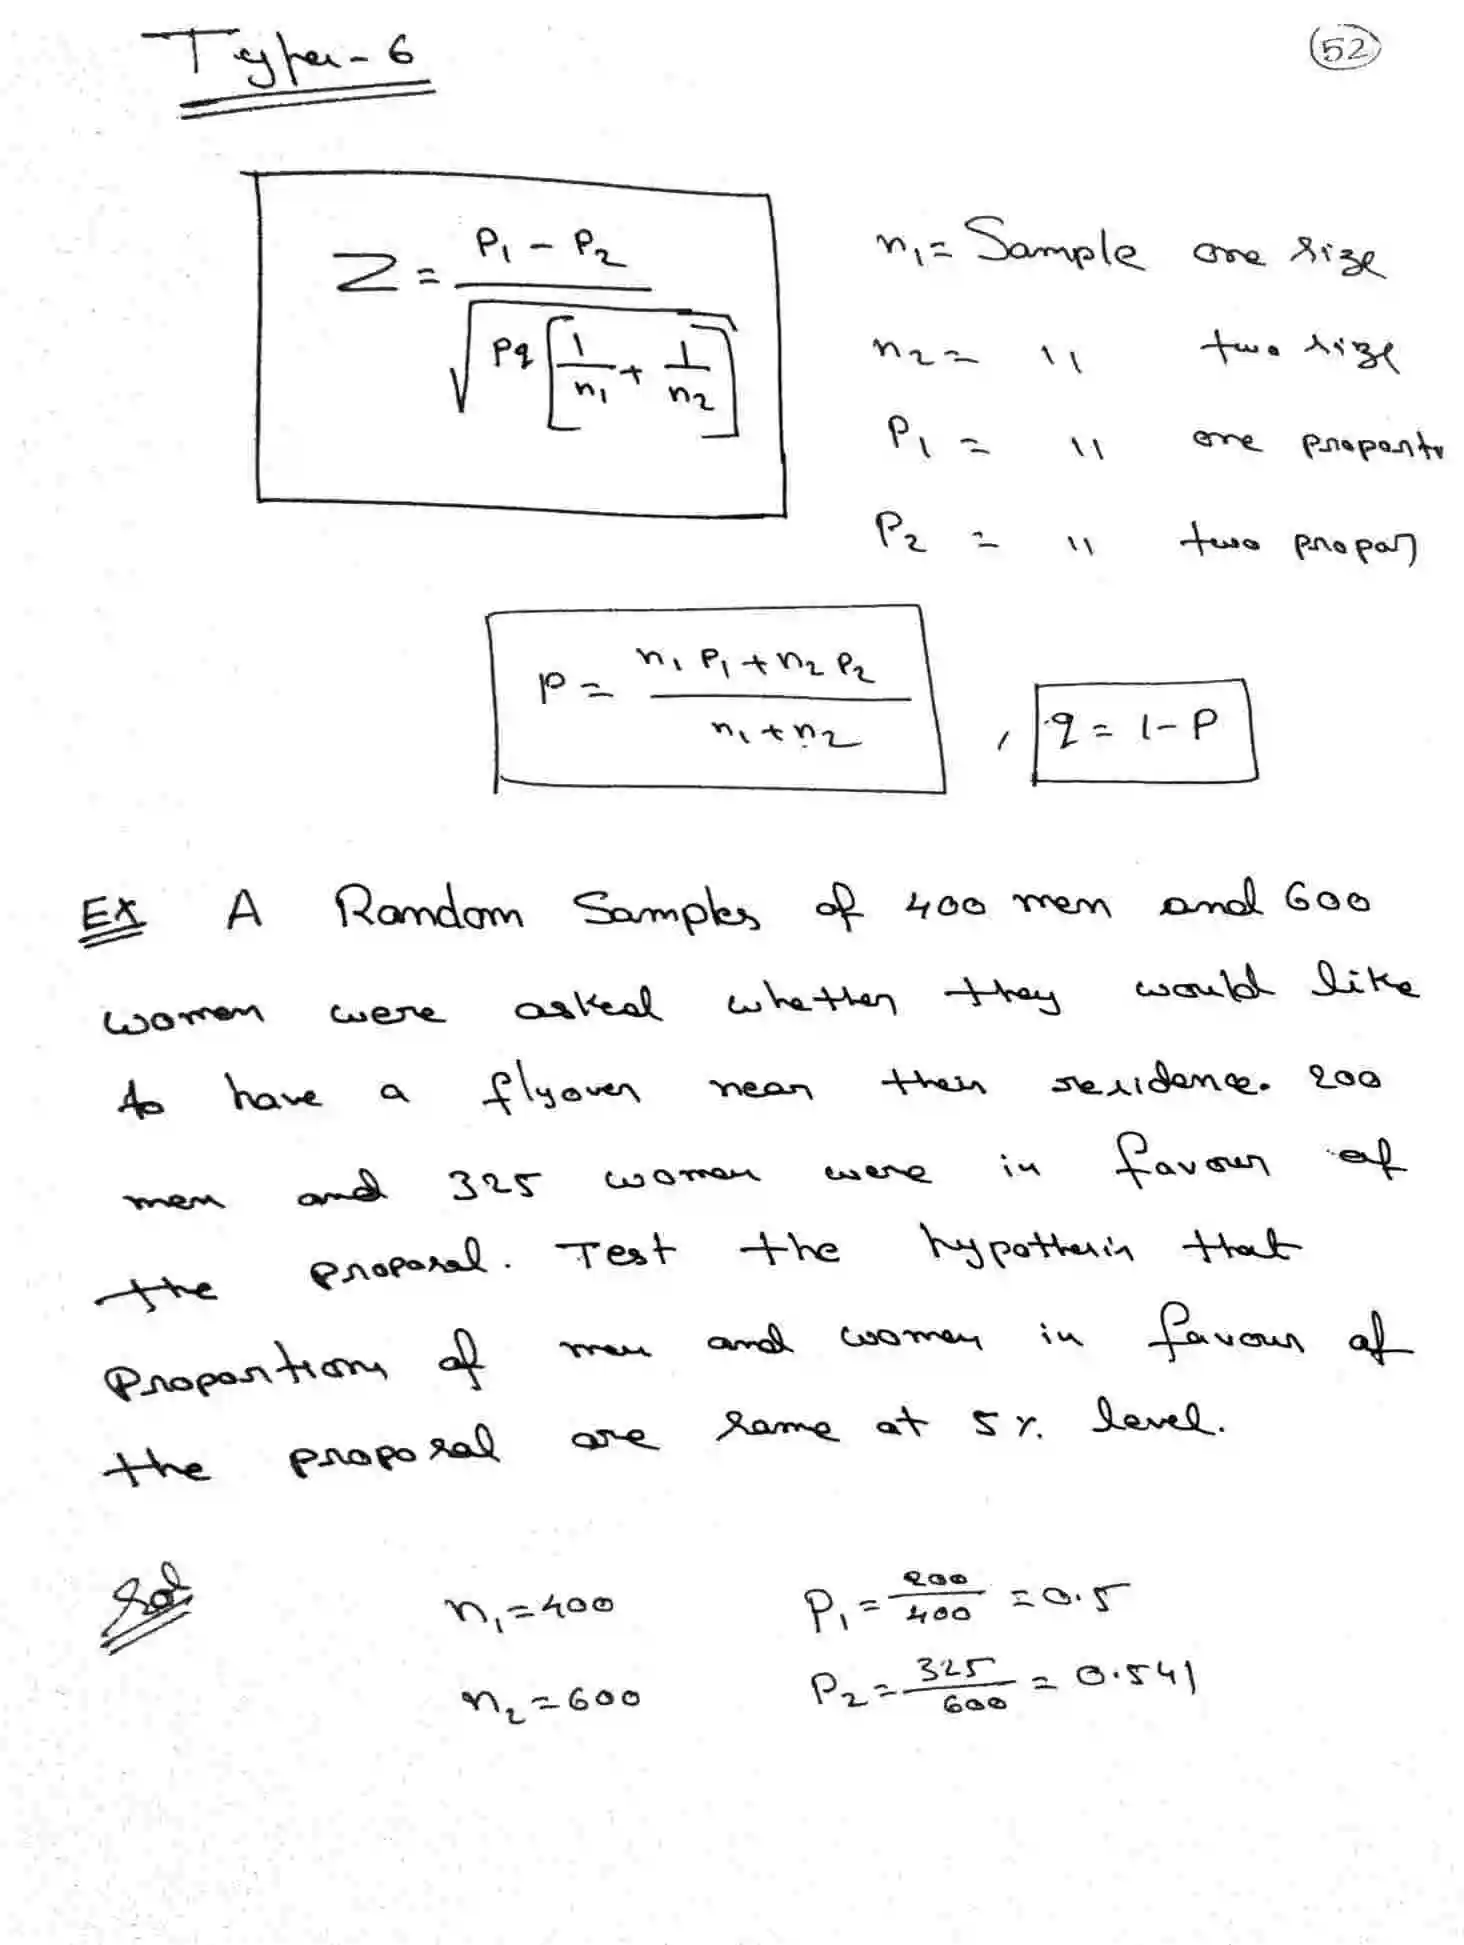 Type-6
52
Z = P₁ - P₂ / √pq[1/n₁ + 1/n₂]
n₁ = Sample one size
n₂ = " two size
P₁ = " one proporti
P₂ = " two propor
P = n₁ P₁ + n₂ P₂ / n₁ + n₂ , q = 1 - P
Ex A Random Samples of 400 men and 600
women were asked whether they would like
to have a flyover near their residence. 200
men and 325 women were in favour of
the proposal. Test the hypothesis that
Proportions of men and women in favour of
the proposal are same at 5% level.
Sol n₁ = 400 P₁ = 200/400 = 0.5
n₂ = 600 P₂ = 325/600 = 0.541